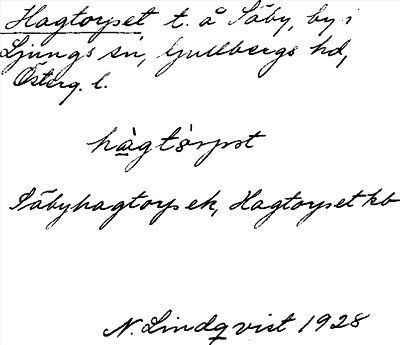 Hagtorpet t. å Säby, by i
Ljungs sn, Gullbergs hd,
Österg. l.
hàgtòrpət
Säbyhagtorp ek, Hagtorpet kb
N. Lindqvist 1928